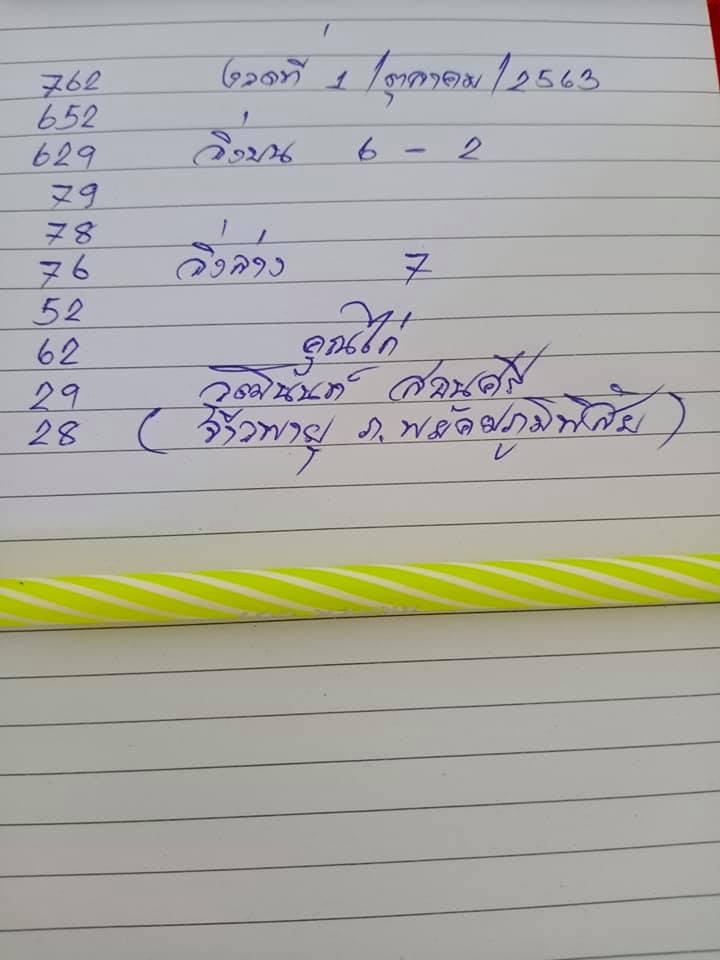 762 งวดที่ 1/ตุลาคม/2563
652
629 วิ่งบน 6 - 2
79
78
76 วิ่งล่าง 7
52
62 คุณไก่
29 วุฒินันท์ สอนศรี
28 (จ้าวพายุ ภ.พยัคฆภูมิพิสัย)